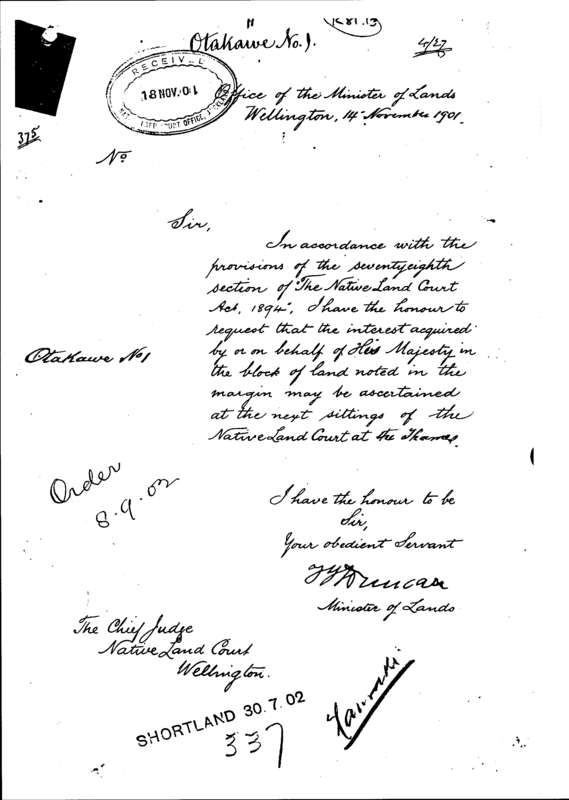 H
1C81.13
Otakawe No. 1.
4/27
RECEIVED
18 NOV. 01
Office of the Minister of Lands
Wellington, 14th November 1901.
375
No
Sir,
In accordance with the
provisions of the seventyeighth
section of "The Native Land Court
Act, 1894", I have the honour to
request that the interest acquired
by or on behalf of His Majesty in
Otakawe No 1
the block of land noted in the
margin may be ascertained
at the next sittings of the
Native Land Court at the Thames.
Order
8.9.02
I have the honour to be
Sir,
Your obedient Servant
Duncan
Minister of Lands
The Chief Judge
Native Land Court
Wellington.
SHORTLAND 30.7.02
337